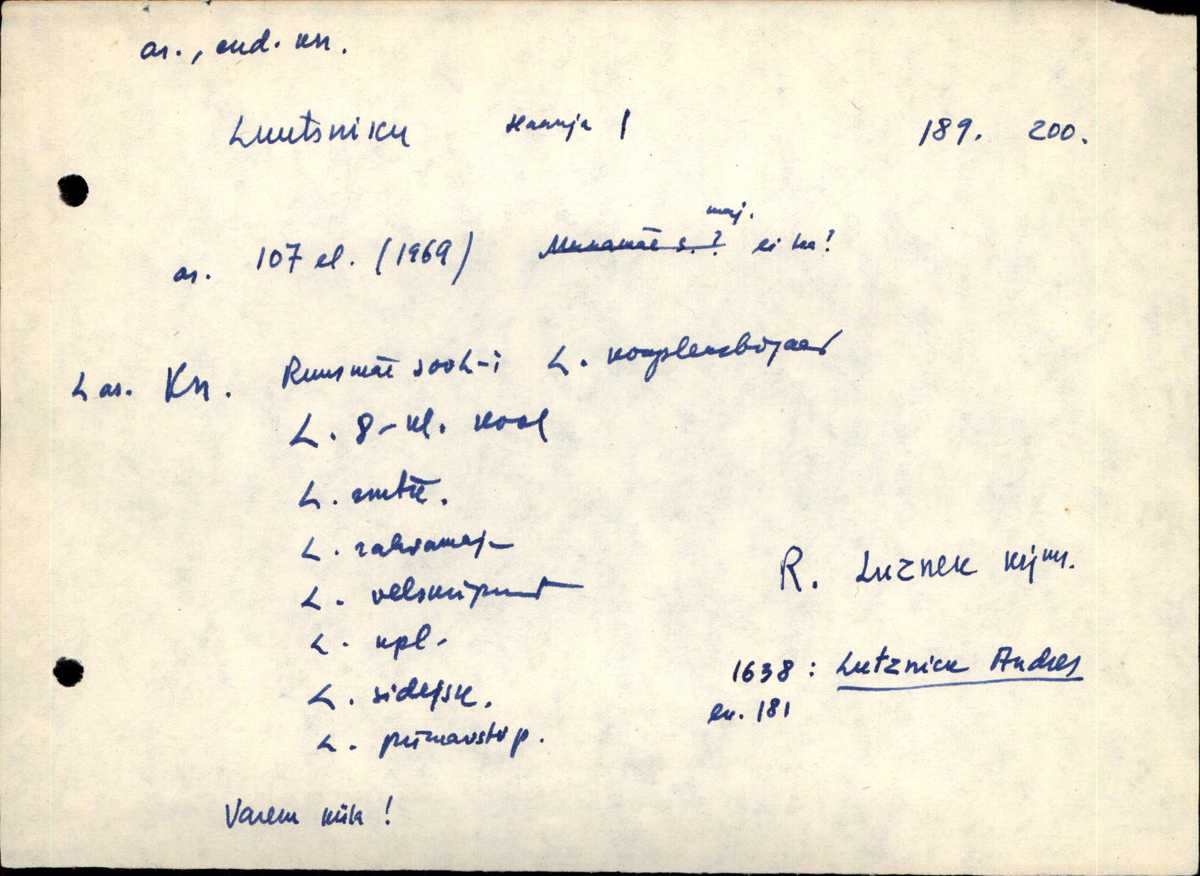 as., end. kn.
Luutsniku Haanja 189. 200.
maj.
as. 107 el. (1969) Munamäe s. ? ei ka?
L as. Kn. Ruusmäe sooh-i L. kompleksbrigaad
L. 8-kl. kool
L. rmtk.
L. rahvamaj.
L. velskripunkt
L. kpl.
L. sidejsk.
L. piimavstvp.
R. Luznek kijms.
1638: Lutznick Andres
lk. 181
Varem küla!